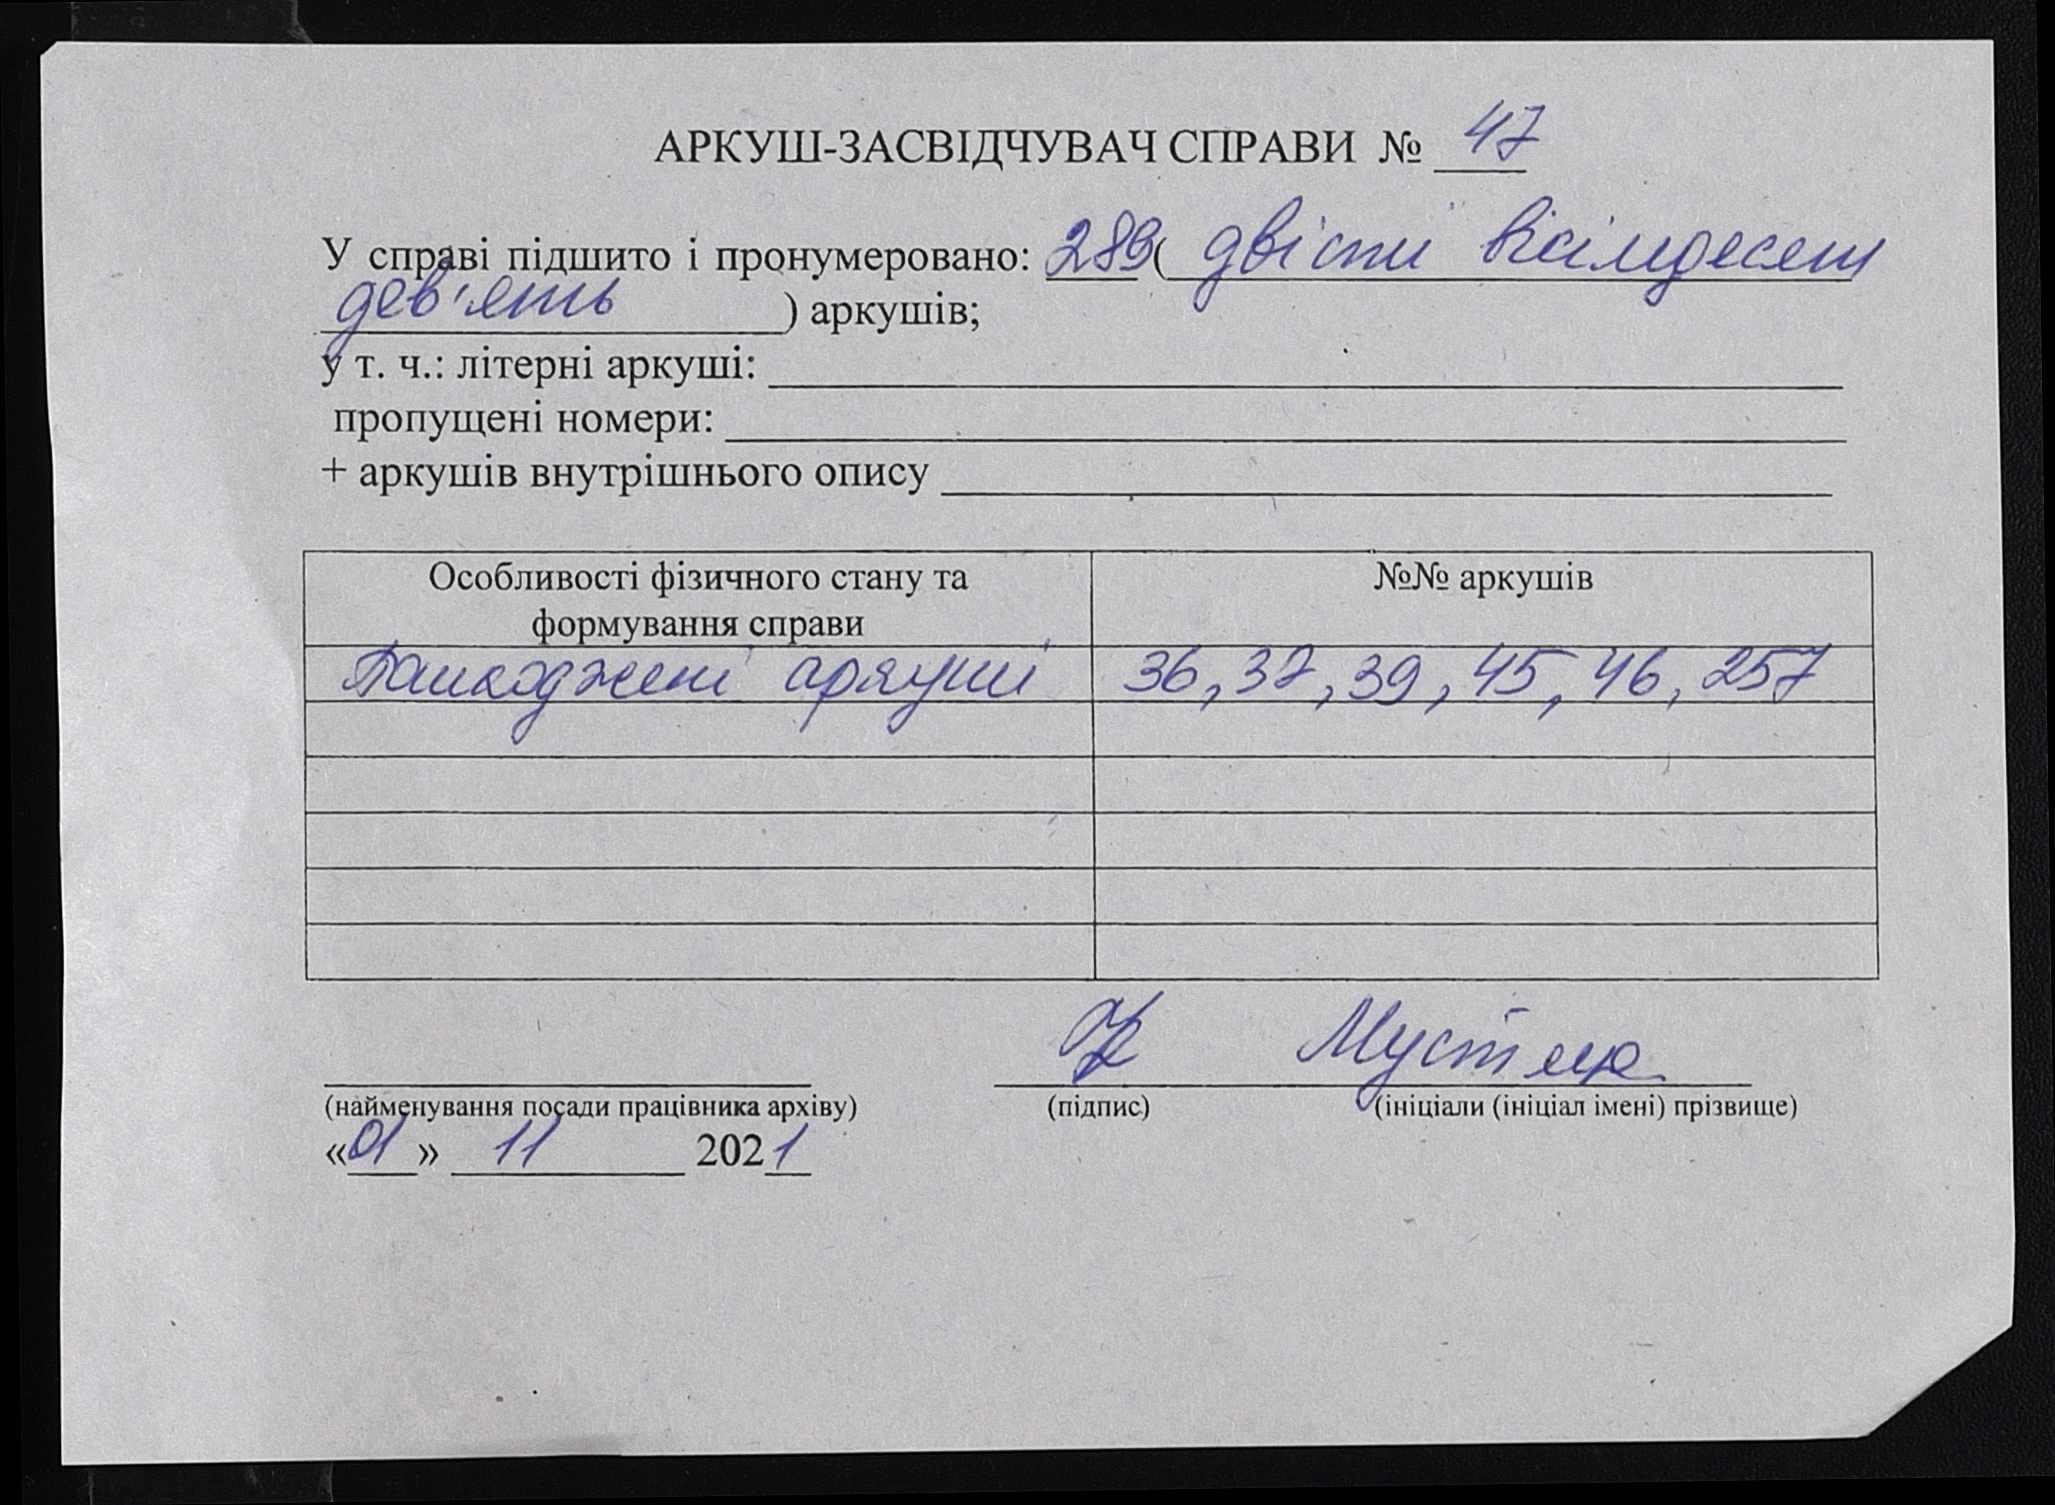 АРКУШ-ЗАСВІДЧУВАЧ СПРАВИ № 47
У справі підшито і пронумеровано: 289 ( двісти вісімдесят
дев'ять ) аркушів;
у т. ч.: літерні аркуші:
пропущені номери:
+ аркушів внутрішнього опису
Особливості фізичного стану та №№ аркушів
формування справи
Пошкоджені аркуші 36, 37, 39, 45, 46, 257
(найменування посади працівника архіву) (підпис) (ініціали (ініціал імені) прізвище)
«01» 11 2021